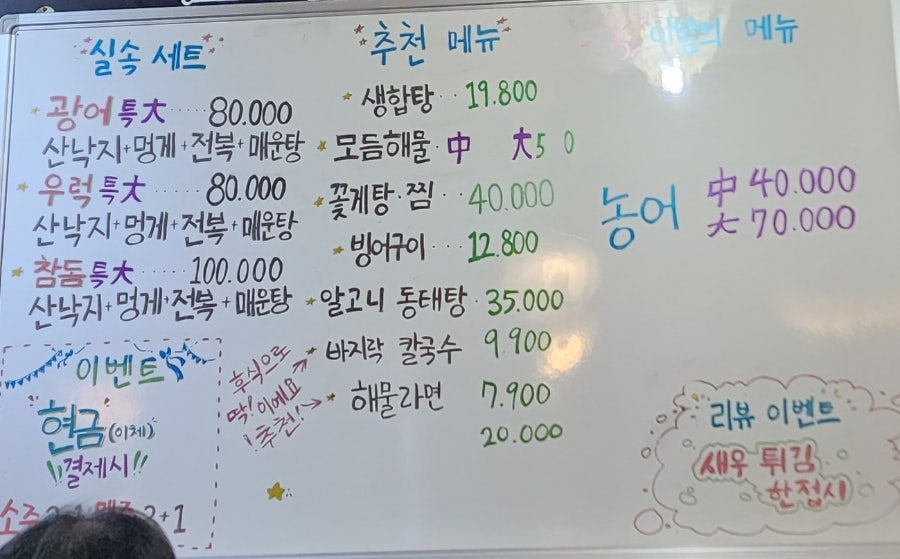 실속 세트
광어 특大 ····· 80.000
산낙지+멍게+전복+매운탕
우럭 특大 ····· 80.000
산낙지+멍게+전복+매운탕
참돔 특大 ····· 100.000
산낙지+멍게+전복+매운탕
이벤트
현금(이체)
결제시!!
소주 2+1
추천 메뉴
생합탕 ·· 19.800
모듬해물 · 中 大5 0
꽃게탕·찜 ·· 40.000
빙어구이 ··· 12.800
알고니 동태탕 · 35.000
바지락 칼국수 9.900
해물라면 7.900
20.000
후식으로
딱!이에요
!추천!
메뉴
농어 中 40.000
大 70.000
리뷰 이벤트
새우 튀김
한접시